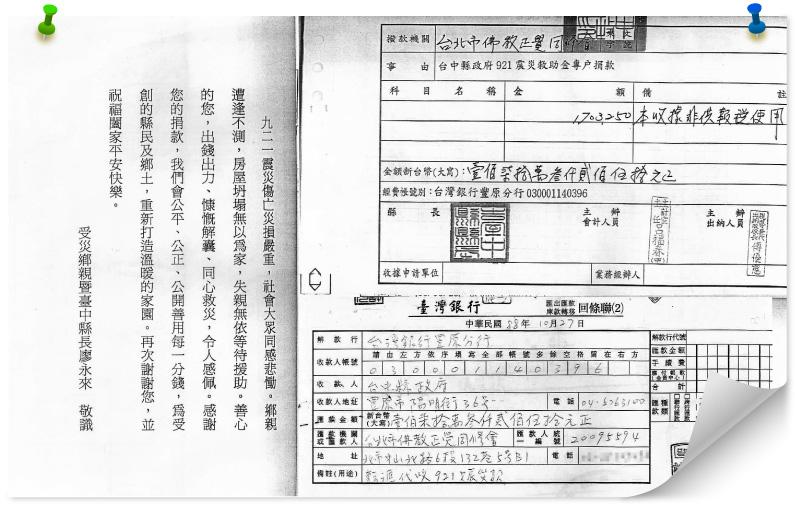 九二一震災傷亡災損嚴重，社會大眾同感悲慟。鄉親
遭逢不測，房屋坍塌無以為家，失親無依等待援助。善心
的您，出錢出力、慷慨解囊、同心救災，令人感佩。感謝
您的捐款，我們會公平、公正、公開善用每一分錢，為受
創的縣民及鄉土，重新打造溫暖的家園。再次謝謝您，並
祝福闔家平安快樂。
受災鄉親暨臺中縣長廖永來 敬
撥款機關 台北市佛教正覺同修會
事由 台中縣政府921震災救助金專戶捐款
科目名稱 金額 備註
1,703250 本收據非供報稅使用
金額新台幣(大寫)：壹佰柒拾萬叁仟貳佰伍拾元正
經費帳號別：台灣銀行豐原分行030001140396
縣長 主辦會計人員 主辦出納人員
收據申請單位 業務經辦人
臺灣銀行 匯出匯款 回條聯(2)
中華民國 88年 10月27日
解款行 台灣銀行豐原分行 解款行代號
請由左方依序填寫全部帳號多餘空格留在右方 匯款金額
收款人帳號 030001140396 手續費
收款人 台中縣政府 合計
收款人地址 豐原市陽明街36號 電話 04-5263100
匯款金額 新台幣(大寫) 壹佰柒拾萬叁仟貳佰伍拾元正 匯款種類
匯款機關或匯款人 台北市佛教正覺同修會 匯款人統一編號 20095594
地址 北市中山北路6段132巷5號 電話
備註(用途) 轉匯代收921賑災款